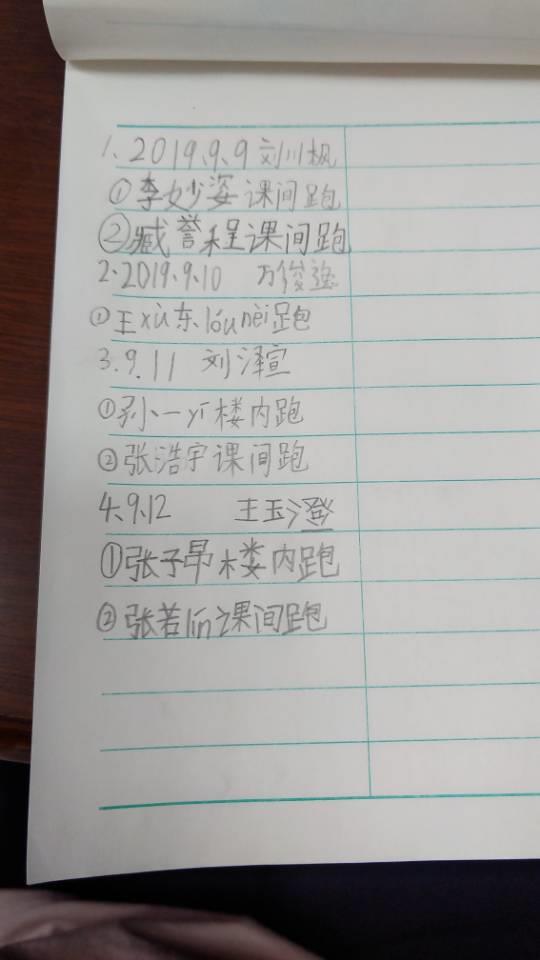 1、2019.9.9 刘川枫
①李妙姿课间跑
②臧誉程课间跑
2.2019.9.10 万俊逸
①王xù东lóunèi跑
3.9.11 刘泽宣
①孙一yī楼内跑
②张浩宇课间跑
4.9.12 王玉澄
①张子昂楼内跑
②张若lín课间跑